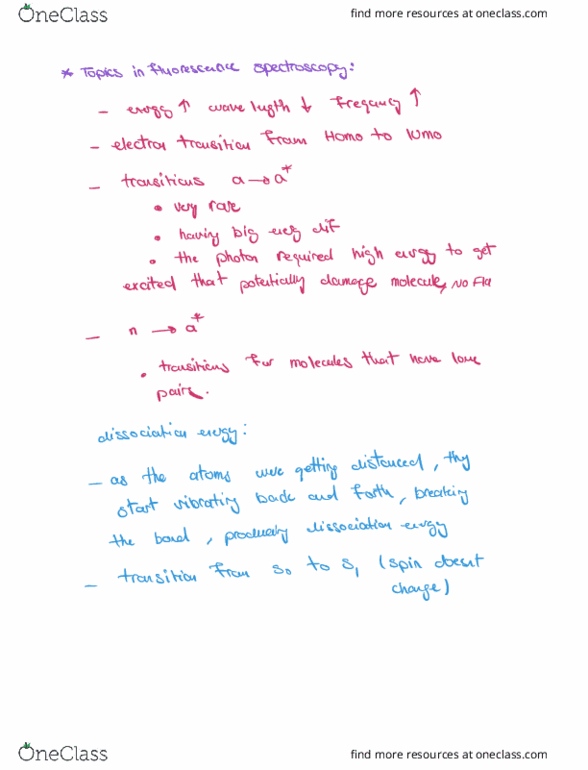 OneClass find more resources at oneclass.com
* Topics in fluorescence spectroscopy:
- energy ↑ wave length ↓ frequency ↑
- electron transition from Homo to lumo
- transitions a → a*
• very rare
• having big energ dif
• the photon required high energy to get
excited that potentially damage molecule, No Flu
- n → a*
• transitions for molecules that have lone
pairs.
dissociation energy:
- as the atoms were getting distanced, they
start vibrating back and forth, breaking
the bond, producing dissociation energy
- transition from S0 to S1 (spin doesnt
change)
OneClass find more resources at oneclass.com